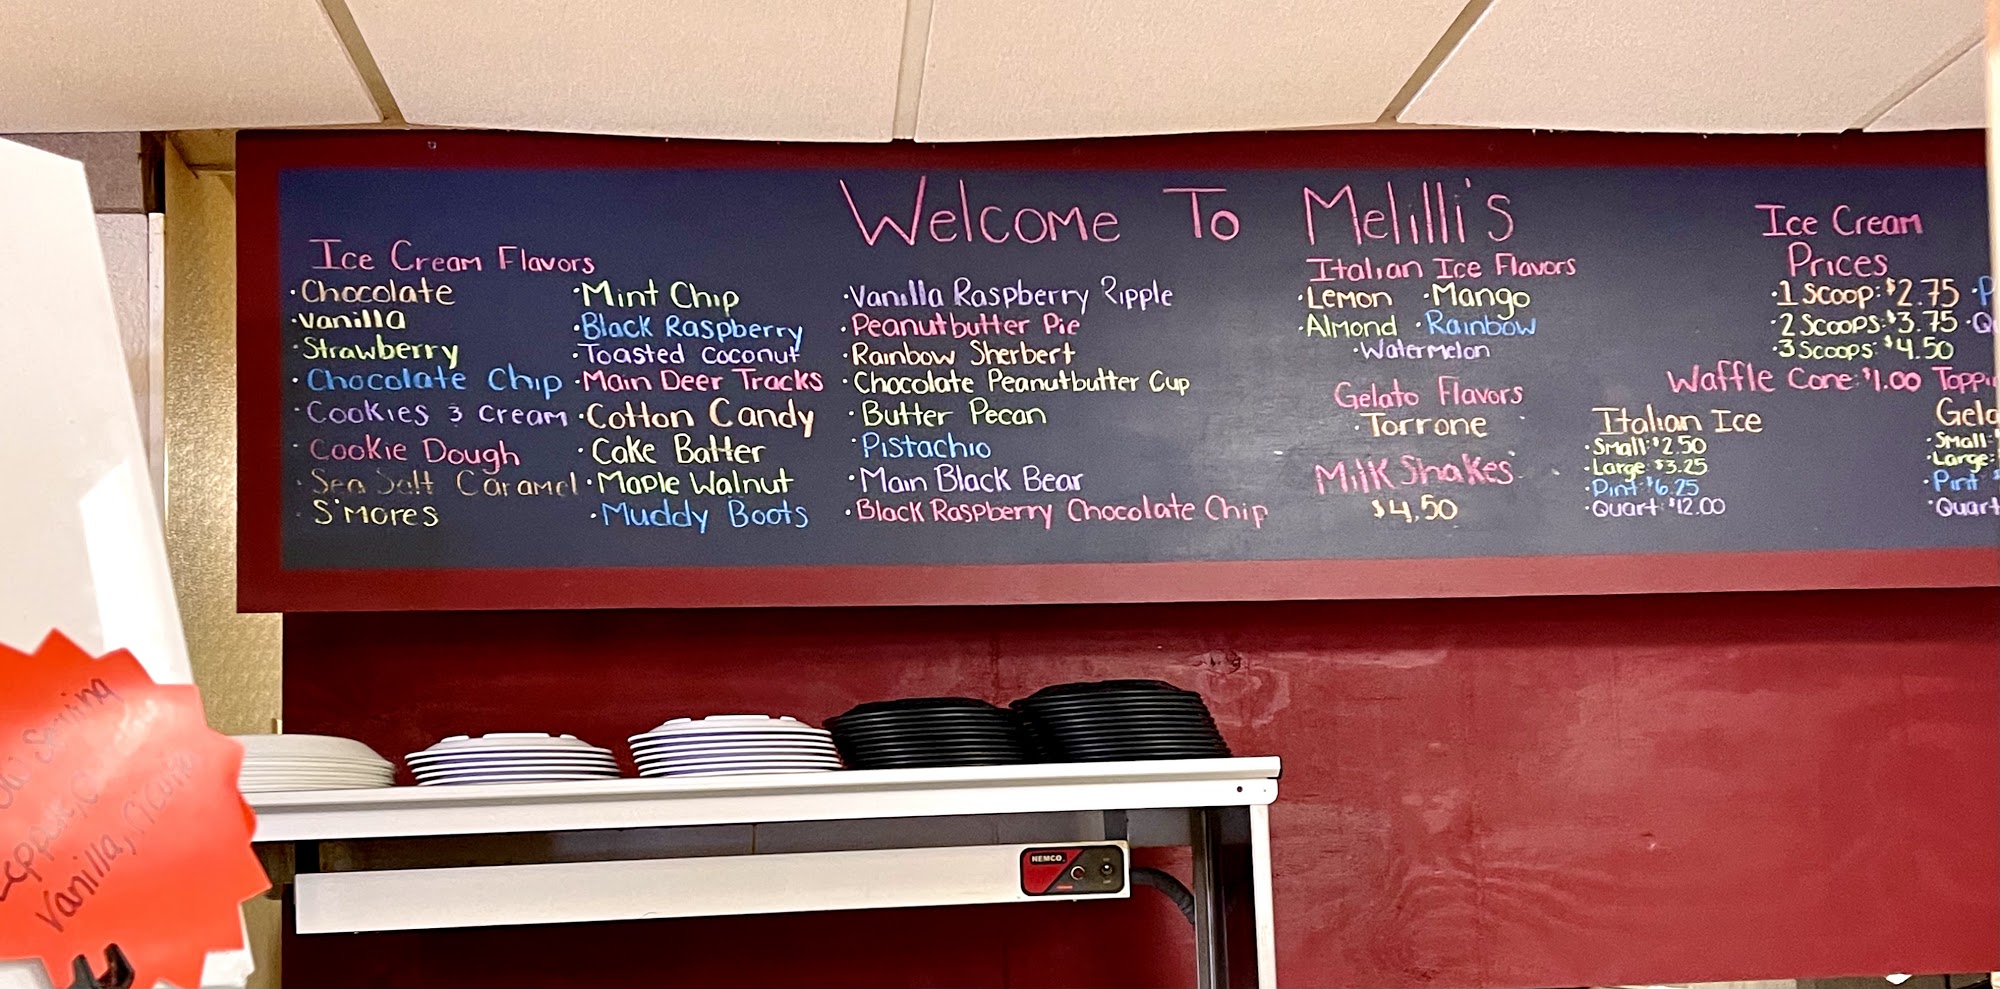 Welcome To Melilli's
Ice Cream Flavors
·Chocolate
·Vanilla
·Strawberry
·Chocolate Chip
·Cookies & Cream
·Cookie Dough
·Sea Salt Caramel
·S'mores
·Mint Chip
·Black Raspberry
·Toasted Coconut
·Main Deer Tracks
·Cotton Candy
·Cake Batter
·Maple Walnut
·Muddy Boots
·Vanilla Raspberry Ripple
·Peanutbutter Pie
·Rainbow Sherbert
·Chocolate Peanutbutter Cup
·Butter Pecan
·Pistachio
·Main Black Bear
·Black Raspberry Chocolate Chip
Italian Ice Flavors
·Lemon ·Mango
·Almond ·Rainbow
·Watermelon
Gelato Flavors
·Torrone
Milk Shakes
$4.50
Ice Cream
Prices
·1 Scoop: $2.75
·2 Scoops: $3.75
·3 Scoops: $4.50
Waffle Cone: $1.00
Italian Ice
·Small: $2.50
·Large: $3.25
·Pint: $6.25
·Quart: $12.00
·Small:
·Large:
·Pint
·Quart
NEMCO
Vanilla,